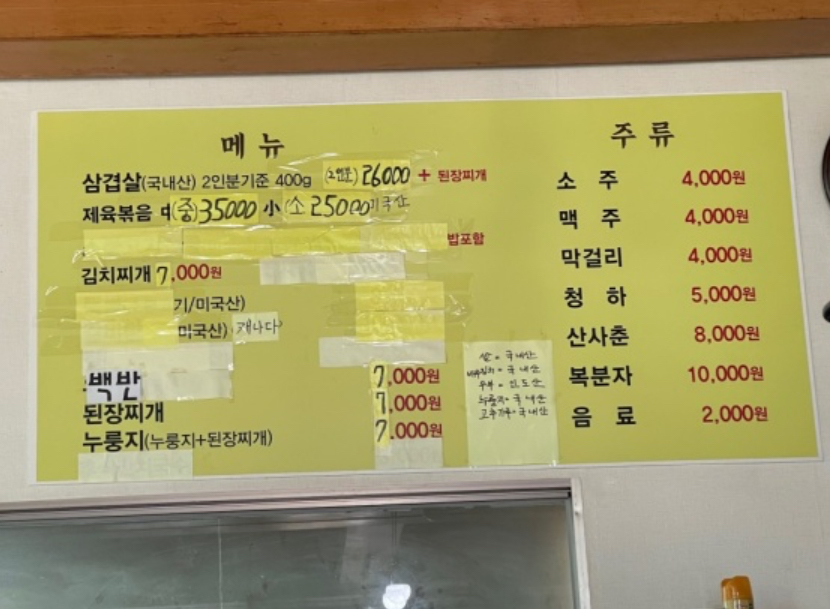 메뉴
삼겹살(국내산) 2인분기준 400g (2인분) 26000 + 된장찌개
제육볶음 (중) 35000 小 (소 25000 미국산
밥포함
김치찌개 7,000원
기/미국산)
미국산) 캐나다
백반 7,000원
된장찌개 7,000원
누룽지(누룽지+된장찌개) 7,000원
쌀 = 국내산
배추김치 = 국내산
두부 = 인도산
누룽지 = 국내산
고추가루 = 국내산
주류
소주 4,000원
맥주 4,000원
막걸리 4,000원
청하 5,000원
산사춘 8,000원
복분자 10,000원
음료 2,000원